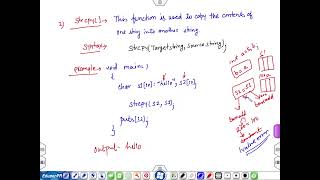 2) strcpy() → This function is used to copy the contents
of one string into another string.
Syntax → strcpy(Target string, Source string);
example → void main()
{
char s1[10]= "hello", s2[10];
strcpy(s2, s1);
puts(s2);
}
Output - hello
int a=5, b;
b = a;
s2 = s1;
= 100
constant
lvalue error